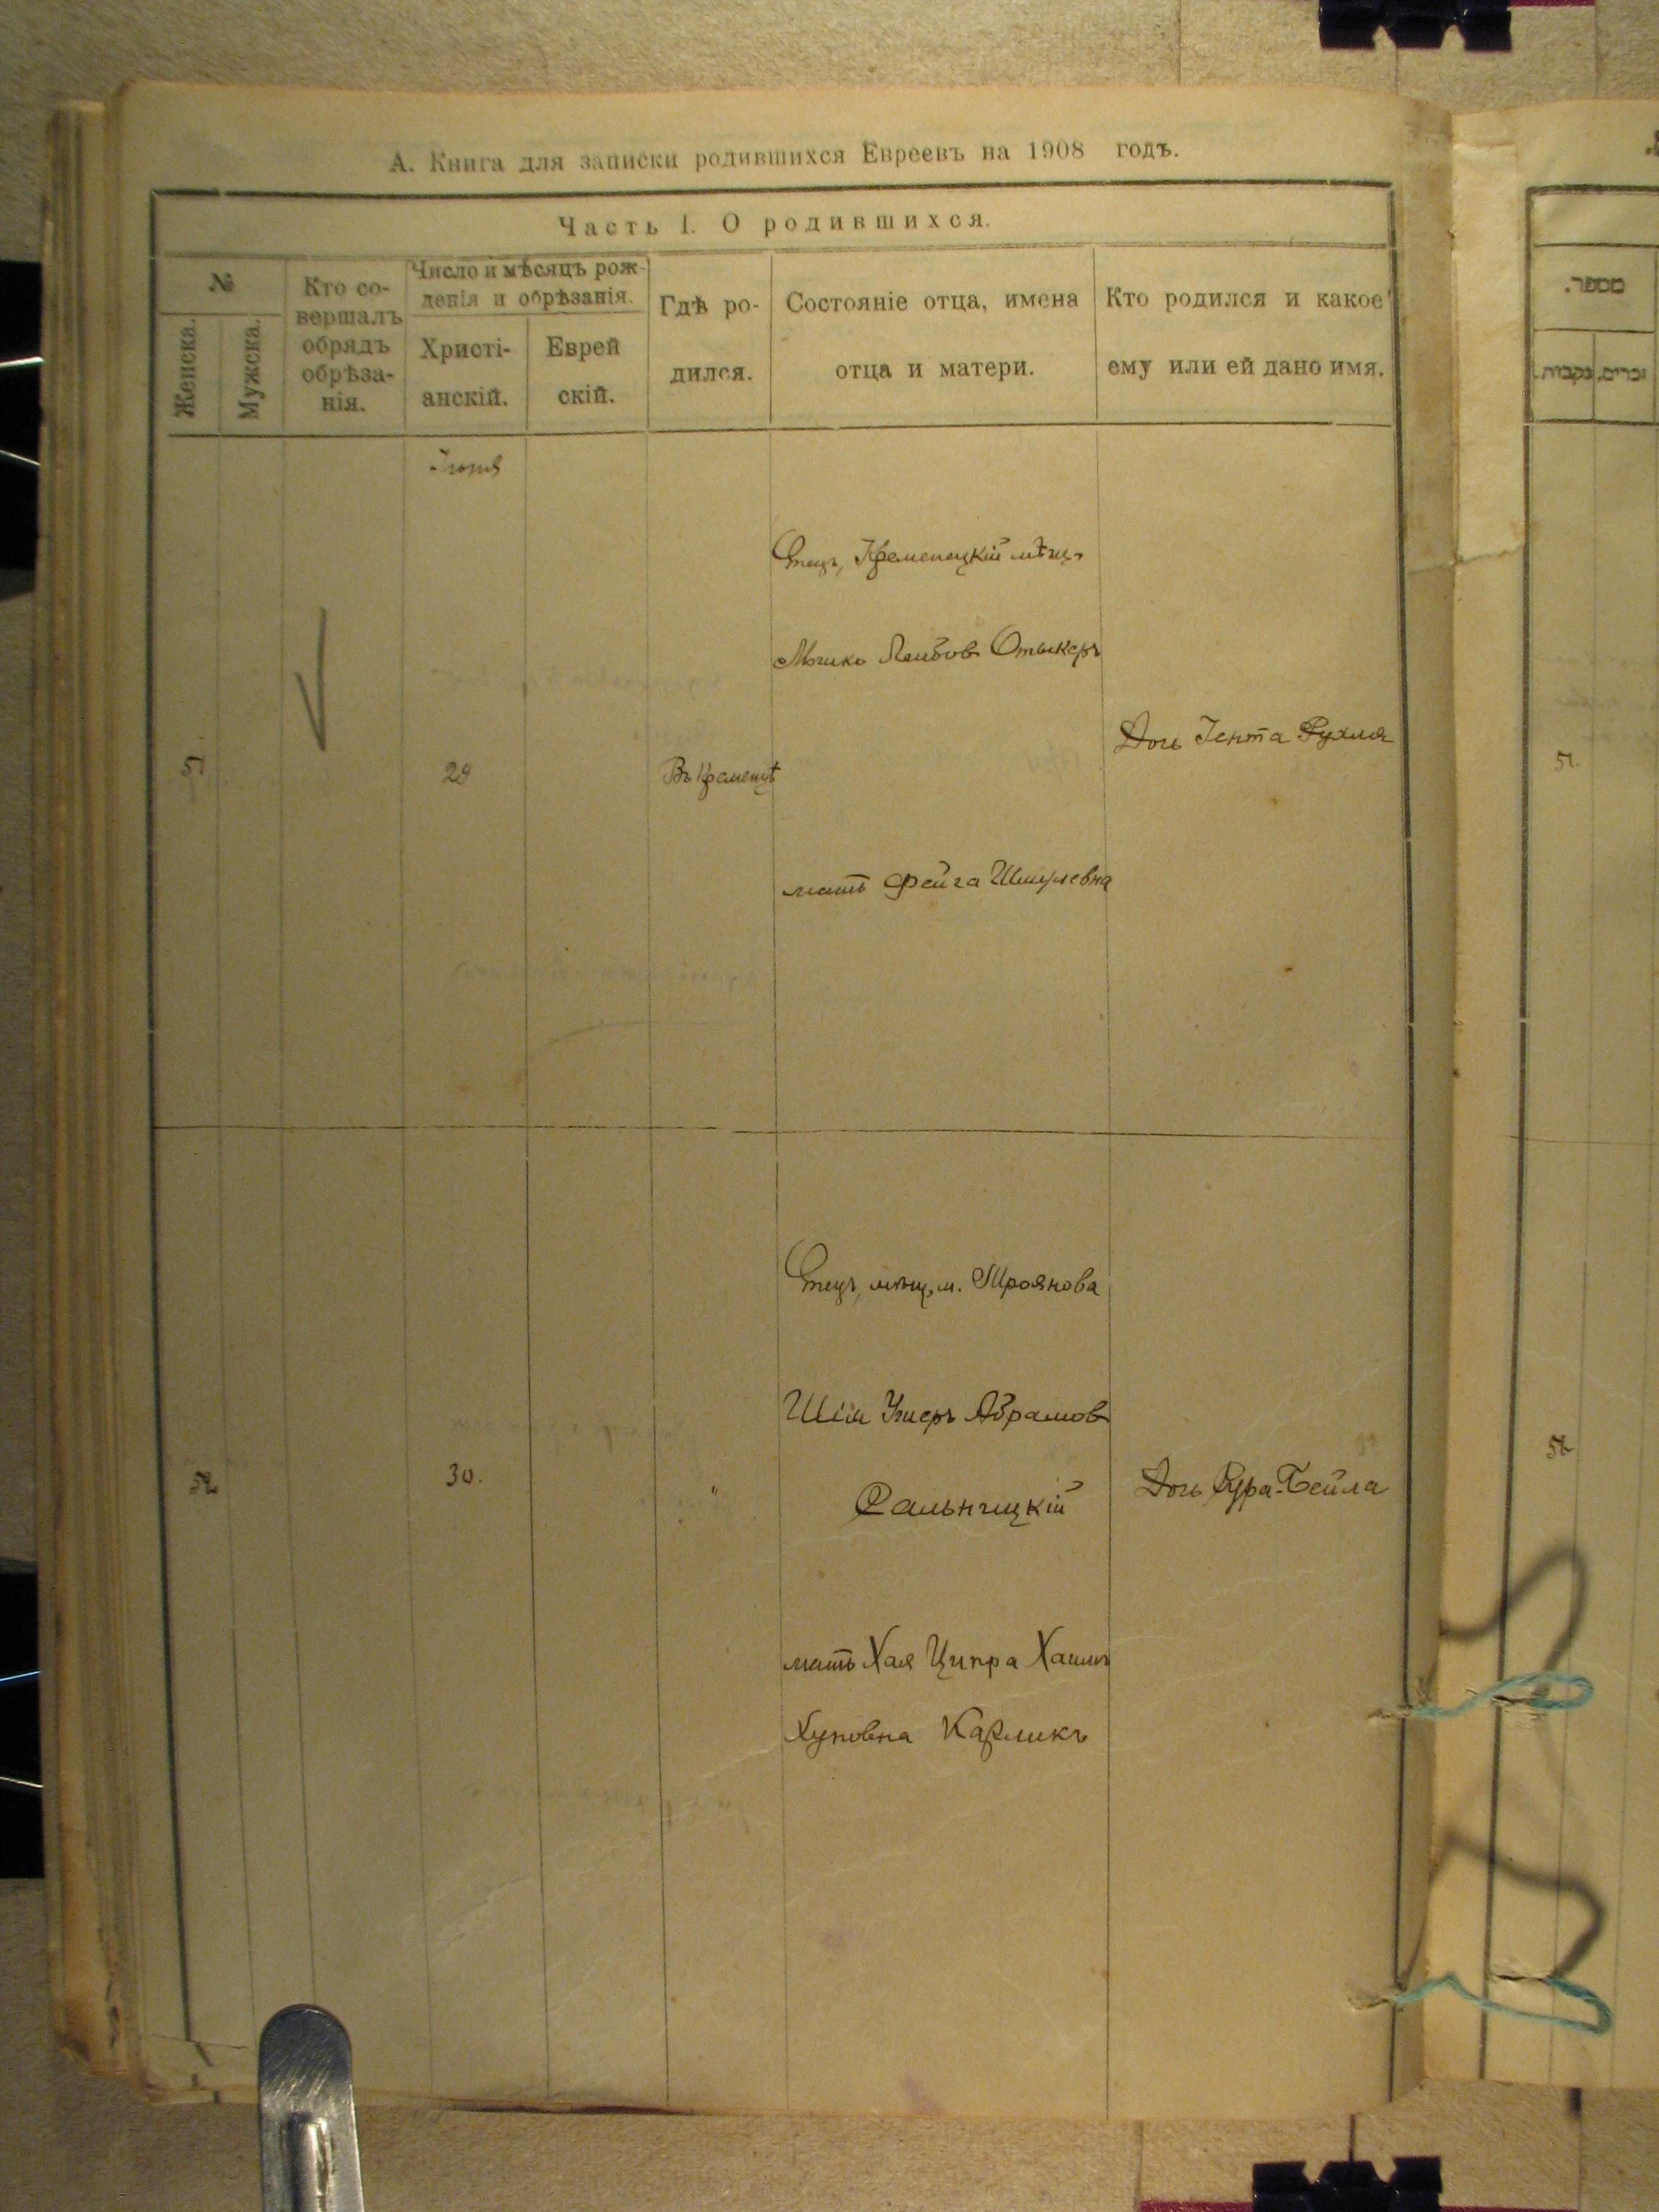 А. Книга для записки родившихся Евреевъ на 1908 годъ.
Часть I. О родившихся.
№
Женска.
Мужска.
Кто со-
вершалъ
обрядъ
обрѣза-
нія.
Число и мѣсяцъ рож-
денія и обрѣзанія.
Христі-
анскій.
Еврей
скій.
Гдѣ ро-
дился.
Состояніе отца, имена
отца и матери.
Кто родился и какое
ему или ей дано имя.
51
29
Въ Кременцѣ
Отецъ, Кременецкій мѣщ.
Лейбов
мать Фейга Шмулевна
Дочь Гента Рухля
52
30.
"
Отецъ, мѣщ. м. Троянова
Шія Ушеръ Абрамов
Сальницкій
мать Хая Ципра Хаим
Карликъ
Дочь Сура-Бейла
מספר.
זכרים.
נקבות.
51.
52